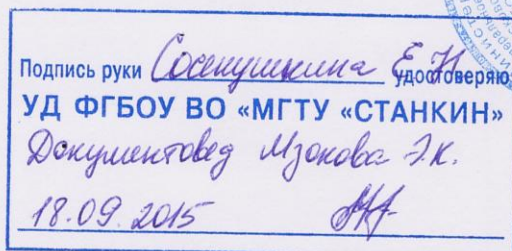 Подпись руки Сосенушкина Е.Н. удостоверяю
УД ФГБОУ ВО «МГТУ «СТАНКИН»
Документовед Мзокова Э.К.
18.09.2015